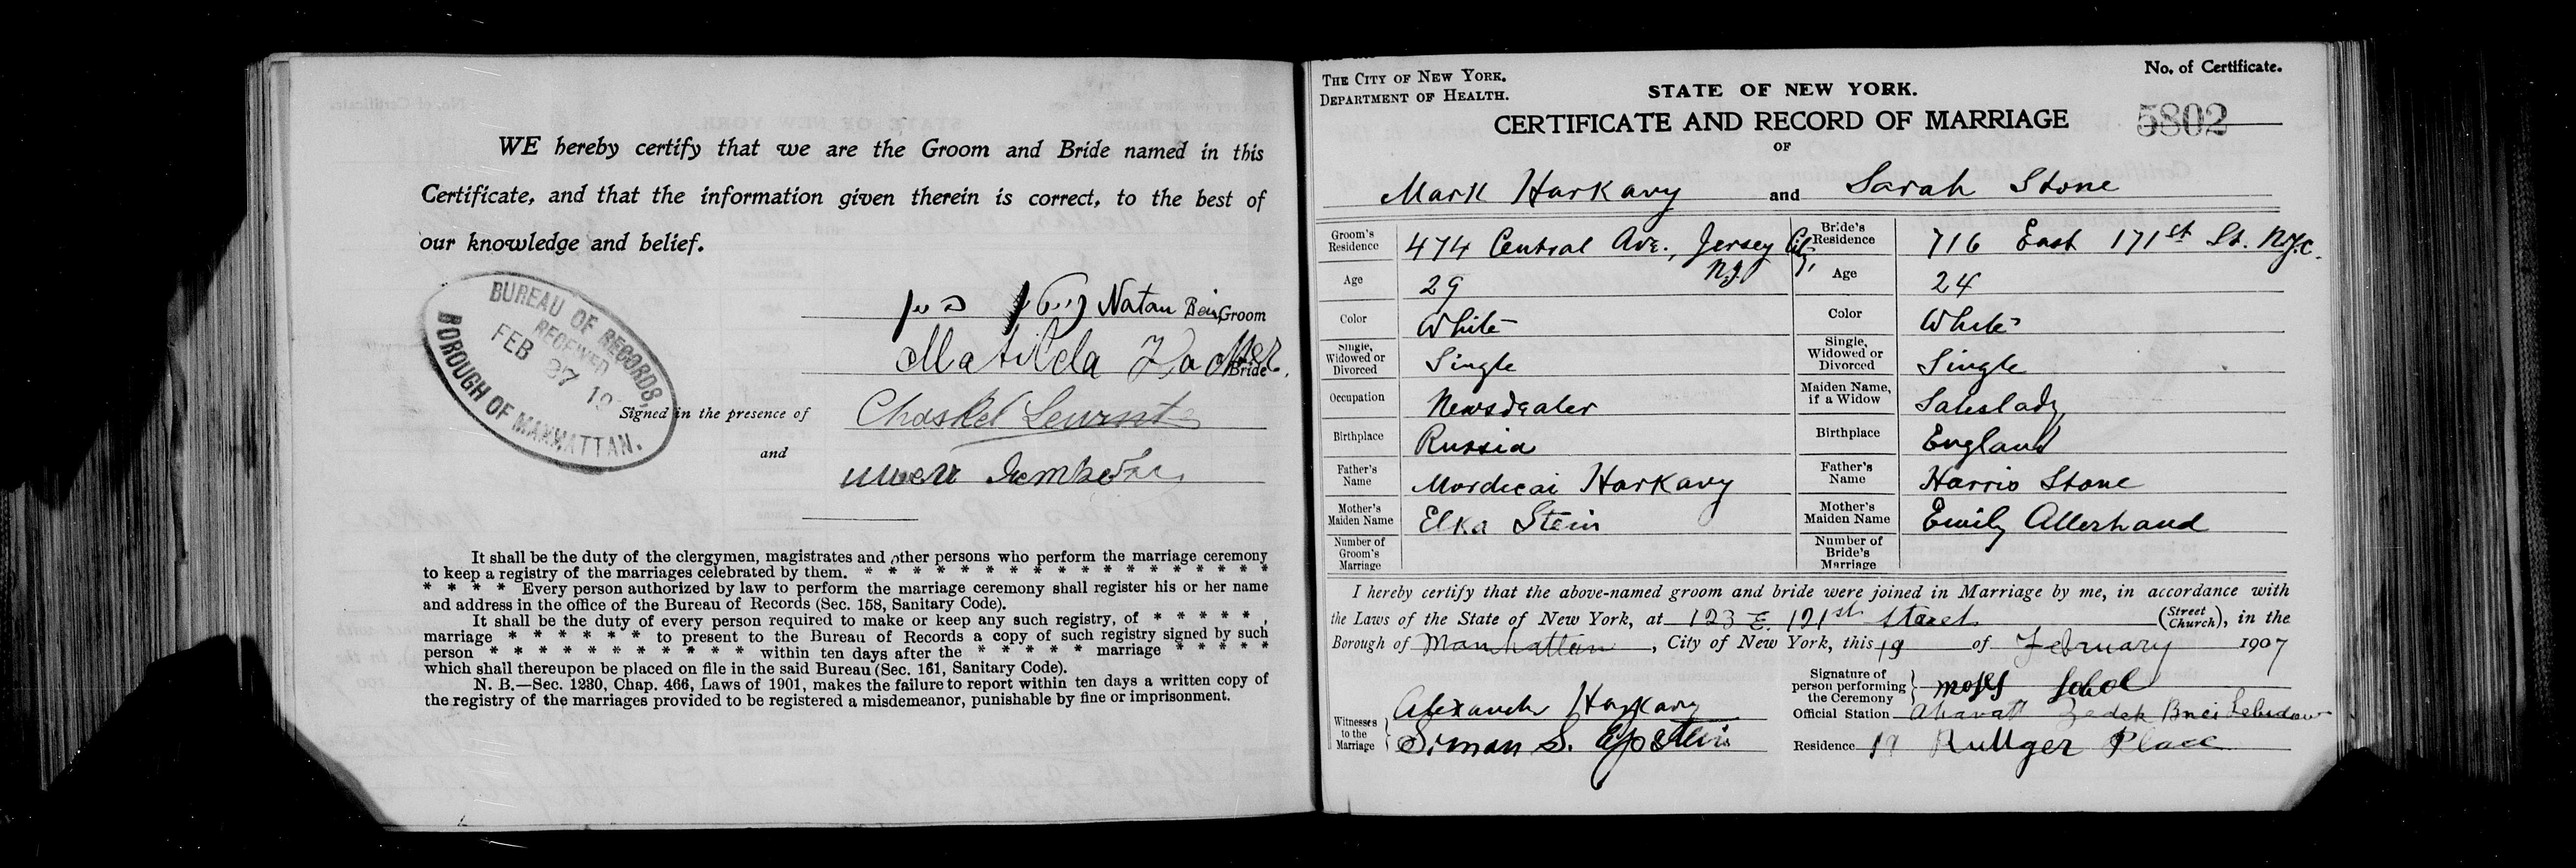 WE hereby certify that we are the Groom and Bride named in this
Certificate, and that the information given therein is correct, to the best of
our knowledge and belief.
BUREAU OF RECORDS,
RECEIVED
FEB 27 19
BOROUGH OF MANHATTAN.
Natan Groom
Matilda Bride
Signed in the presence of Chaskel
and
It shall be the duty of the clergymen, magistrates and other persons who perform the marriage ceremony
to keep a registry of the marriages celebrated by them. * * * * * * * * * * * * * * * * *
* * * * Every person authorized by law to perform the marriage ceremony shall register his or her name
and address in the office of the Bureau of Records (Sec. 158, Sanitary Code).
It shall be the duty of every person required to make or keep any such registry, of * * * * * ,
marriage * * * * * * to present to the Bureau of Records a copy of such registry signed by such
person * * * * * * * * * * * within ten days after the * * * * * marriage * * * * *
which shall thereupon be placed on file in the said Bureau (Sec. 161, Sanitary Code).
N. B.—Sec. 1230, Chap. 466, Laws of 1901, makes the failure to report within ten days a written copy of
the registry of the marriages provided to be registered a misdemeanor, punishable by fine or imprisonment.
THE CITY OF NEW YORK.
DEPARTMENT OF HEALTH.
No. of Certificate.
5802
STATE OF NEW YORK.
CERTIFICATE AND RECORD OF MARRIAGE
OF
Mark Harkavy and Sarah Stone
Groom's Residence 474 Central Ave., Jersey City, N.J. Bride's Residence 716 East 171st St. N.Y.C.
Age 29 Age 24
Color White Color White
Single, Widowed or Divorced Single Single, Widowed or Divorced Single
Occupation Newsdealer Maiden Name, if a Widow Saleslady
Birthplace Russia Birthplace England
Father's Name Mordecai Harkavy Father's Name Harris Stone
Mother's Maiden Name Elka Stein Mother's Maiden Name Emily Allerhand
Number of Groom's Marriage Number of Bride's Marriage
I hereby certify that the above-named groom and bride were joined in Marriage by me, in accordance with
the Laws of the State of New York, at 123 E. 121st Street (Street Church), in the
Borough of Manhattan, City of New York, this 19 of February 1907
Witnesses to the Marriage Alexander Harkavy
Simon S. Epstein
Signature of person performing the Ceremony Moses Sokol
Official Station Ahavath Zedek Bnei
Residence 19 Rutger Place